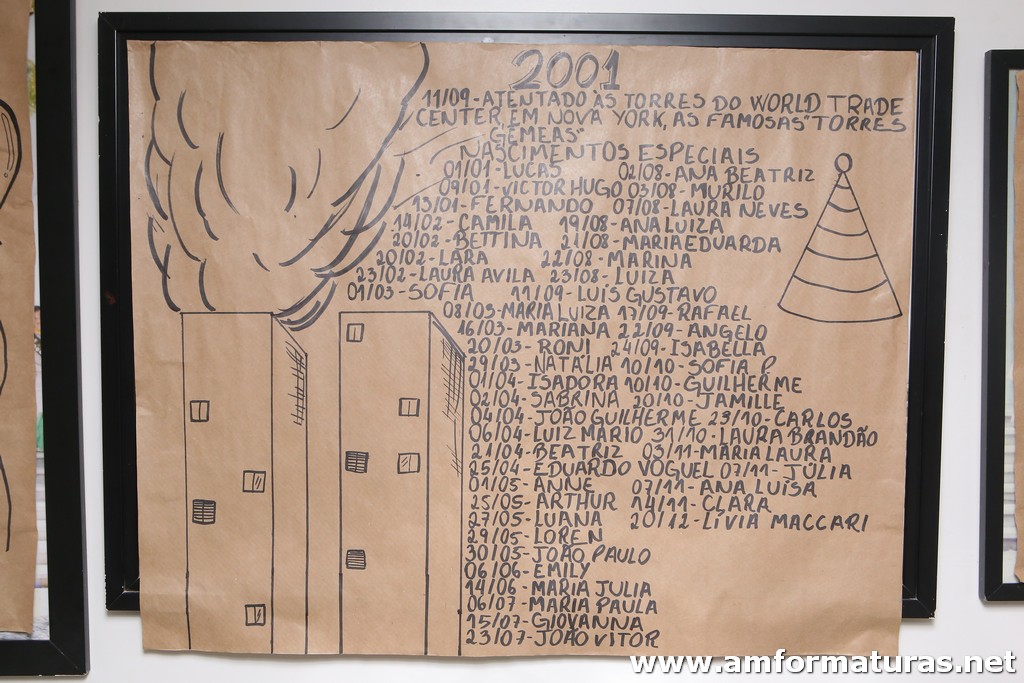 2001
11/09-ATENTADO ÀS TORRES DO WORLD TRADE
CENTER, EM NOVA YORK, AS FAMOSAS "TORRES
GÊMEAS"
NASCIMENTOS ESPECIAIS
01/01-LUCAS 02/08-ANA BEATRIZ
09/01-VICTOR HUGO 03/08-MURILO
13/01-FERNANDO 07/08-LAURA NEVES
14/02-CAMILA 19/08-ANA LUIZA
20/02-BETTINA 21/08-MARIA EDUARDA
20/02-LARA 22/08-MARINA
23/02-LAURA AVILA 23/08-LUIZA
01/03-SOFIA 11/09-LUÍS GUSTAVO
08/03-MARIA LUIZA 17/09-RAFAEL
16/03-MARIANA 22/09-ANGELO
20/03-RONI 24/09-ISABELLA
29/03-NATÁLIA 10/10-SOFIA P.
01/04-ISADORA 10/10-GUILHERME
02/04-SABRINA 20/10-JAMILLE
04/04-JOÃO GUILHERME 23/10-CARLOS
06/04-LUIZ MÁRIO 31/10-LAURA BRANDÃO
21/04-BEATRIZ 03/11-MARIA LAURA
25/04-EDUARDO VOGUEL 07/11-JÚLIA
01/05-ANNE 07/11-ANA LUÍSA
25/05-ARTHUR 14/11-CLARA
27/05-LUANA 20/12-LÍVIA MACCARI
29/05-LOREN
30/05-JOÃO PAULO
06/06-EMILY
14/06-MARIA JULIA
06/07-MARIA PAULA
15/07-GIOVANNA
23/07-JOÃO VITOR
www.amformaturas.net